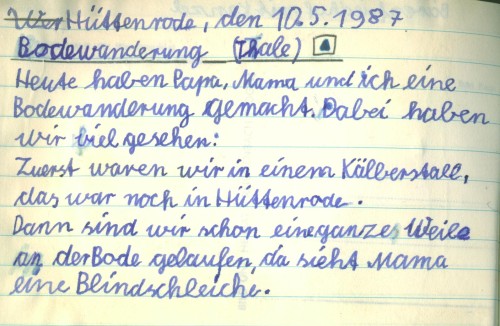 Hüttenrode, den 10.5.1987
Bodewanderung (Thale)
Heute haben Papa, Mama und ich eine
Bodewanderung gemacht. Dabei haben
wir viel gesehen:
Zuerst waren wir in einem Kälberstall,
das war noch in Hüttenrode.
Dann sind wir schon eine ganze Weile
an der Bode gelaufen, da sieht Mama
eine Blindschleiche.